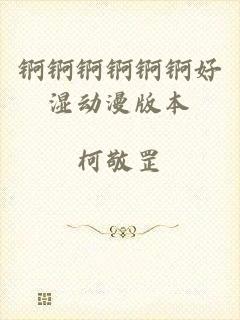 锕锕锕锕锕锕好
湿动漫版本
柯敬罡